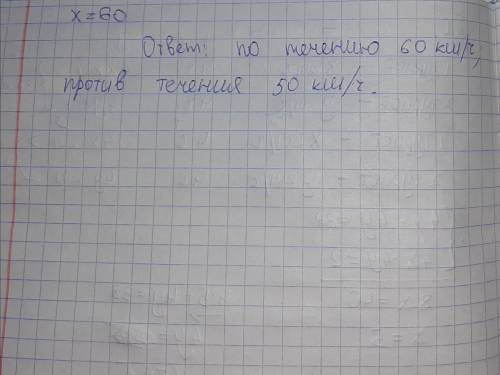 x=60
Ответ: по течению 60 км/ч,
против течения 50 км/ч.